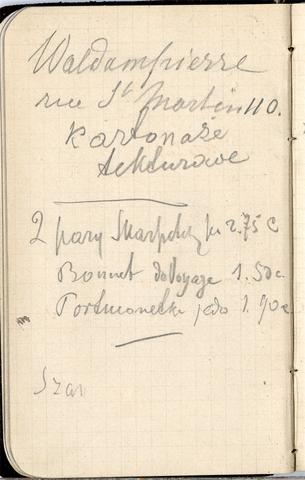 Waldampierre
rue St Martin 110.
Kartonaże
tekturowe
2 pary Skarpetek po 2.75 c
Bonnet do Voyage 1.50 c
Portmonetka jedo 1.90 c
Szar